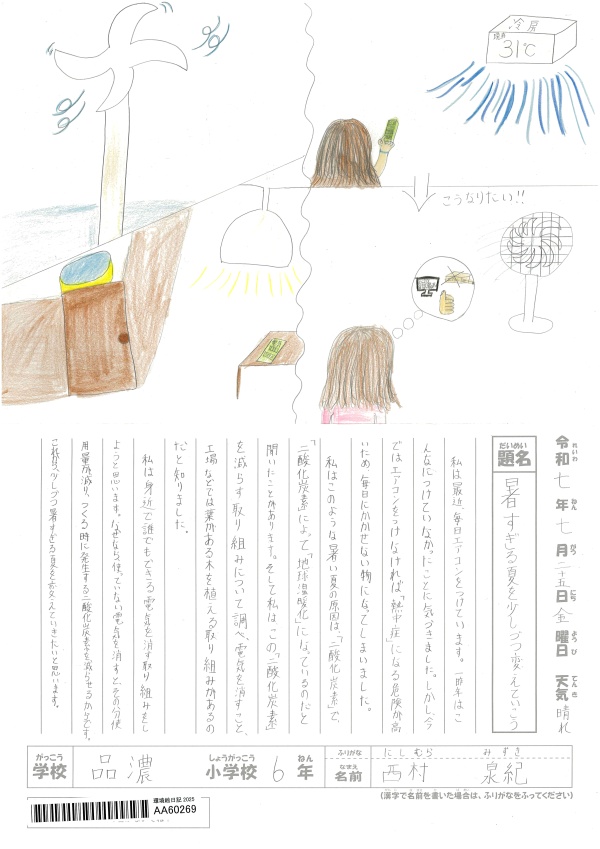 冷房
設定
31℃
こうなりたい!!
令和七年七月二十五日金曜日 天気 晴れ
れいわ ねん がつ にち ようび てんき
だいめい
題名
暑すぎる夏を少しづつ変えていこう
私は最近、毎日エアコンをつけています。一昨年はこ
んなにつけていなかったことに気づきました。しかし、今
ではエアコンをつけなければ「熱中症」になる危険が高
いため、毎日にかかせない物になってしまいました。
私はこのような暑い夏の原因は、「二酸化炭素」で、
「二酸化炭素」によって、「地球温暖化」になっているのだと
聞いたことがあります。そして私は、この「二酸化炭素」
を減らす取り組みについて調べ、電気を消すこと、
工場などでは葉がある木を植える取り組みがあるの
だと知りました。
私は身近で誰でもできる電気を消す取り組みをし
ようと思います。なぜなら、使っていない電気を消すと、その分使
用量が減り、つくる時に発生する二酸化炭素を減らせるからです。
これから、少しづつ暑すぎる夏を変えていきたいと思います。
がっこう
学校
品濃
しょうがっこう
小学校
6
ねん
年
ふりがな
にしむら みずき
なまえ
名前
西村 泉紀
(漢字で名前を書いた場合は、ふりがなをふってください)
環境絵日記2025
AA60269